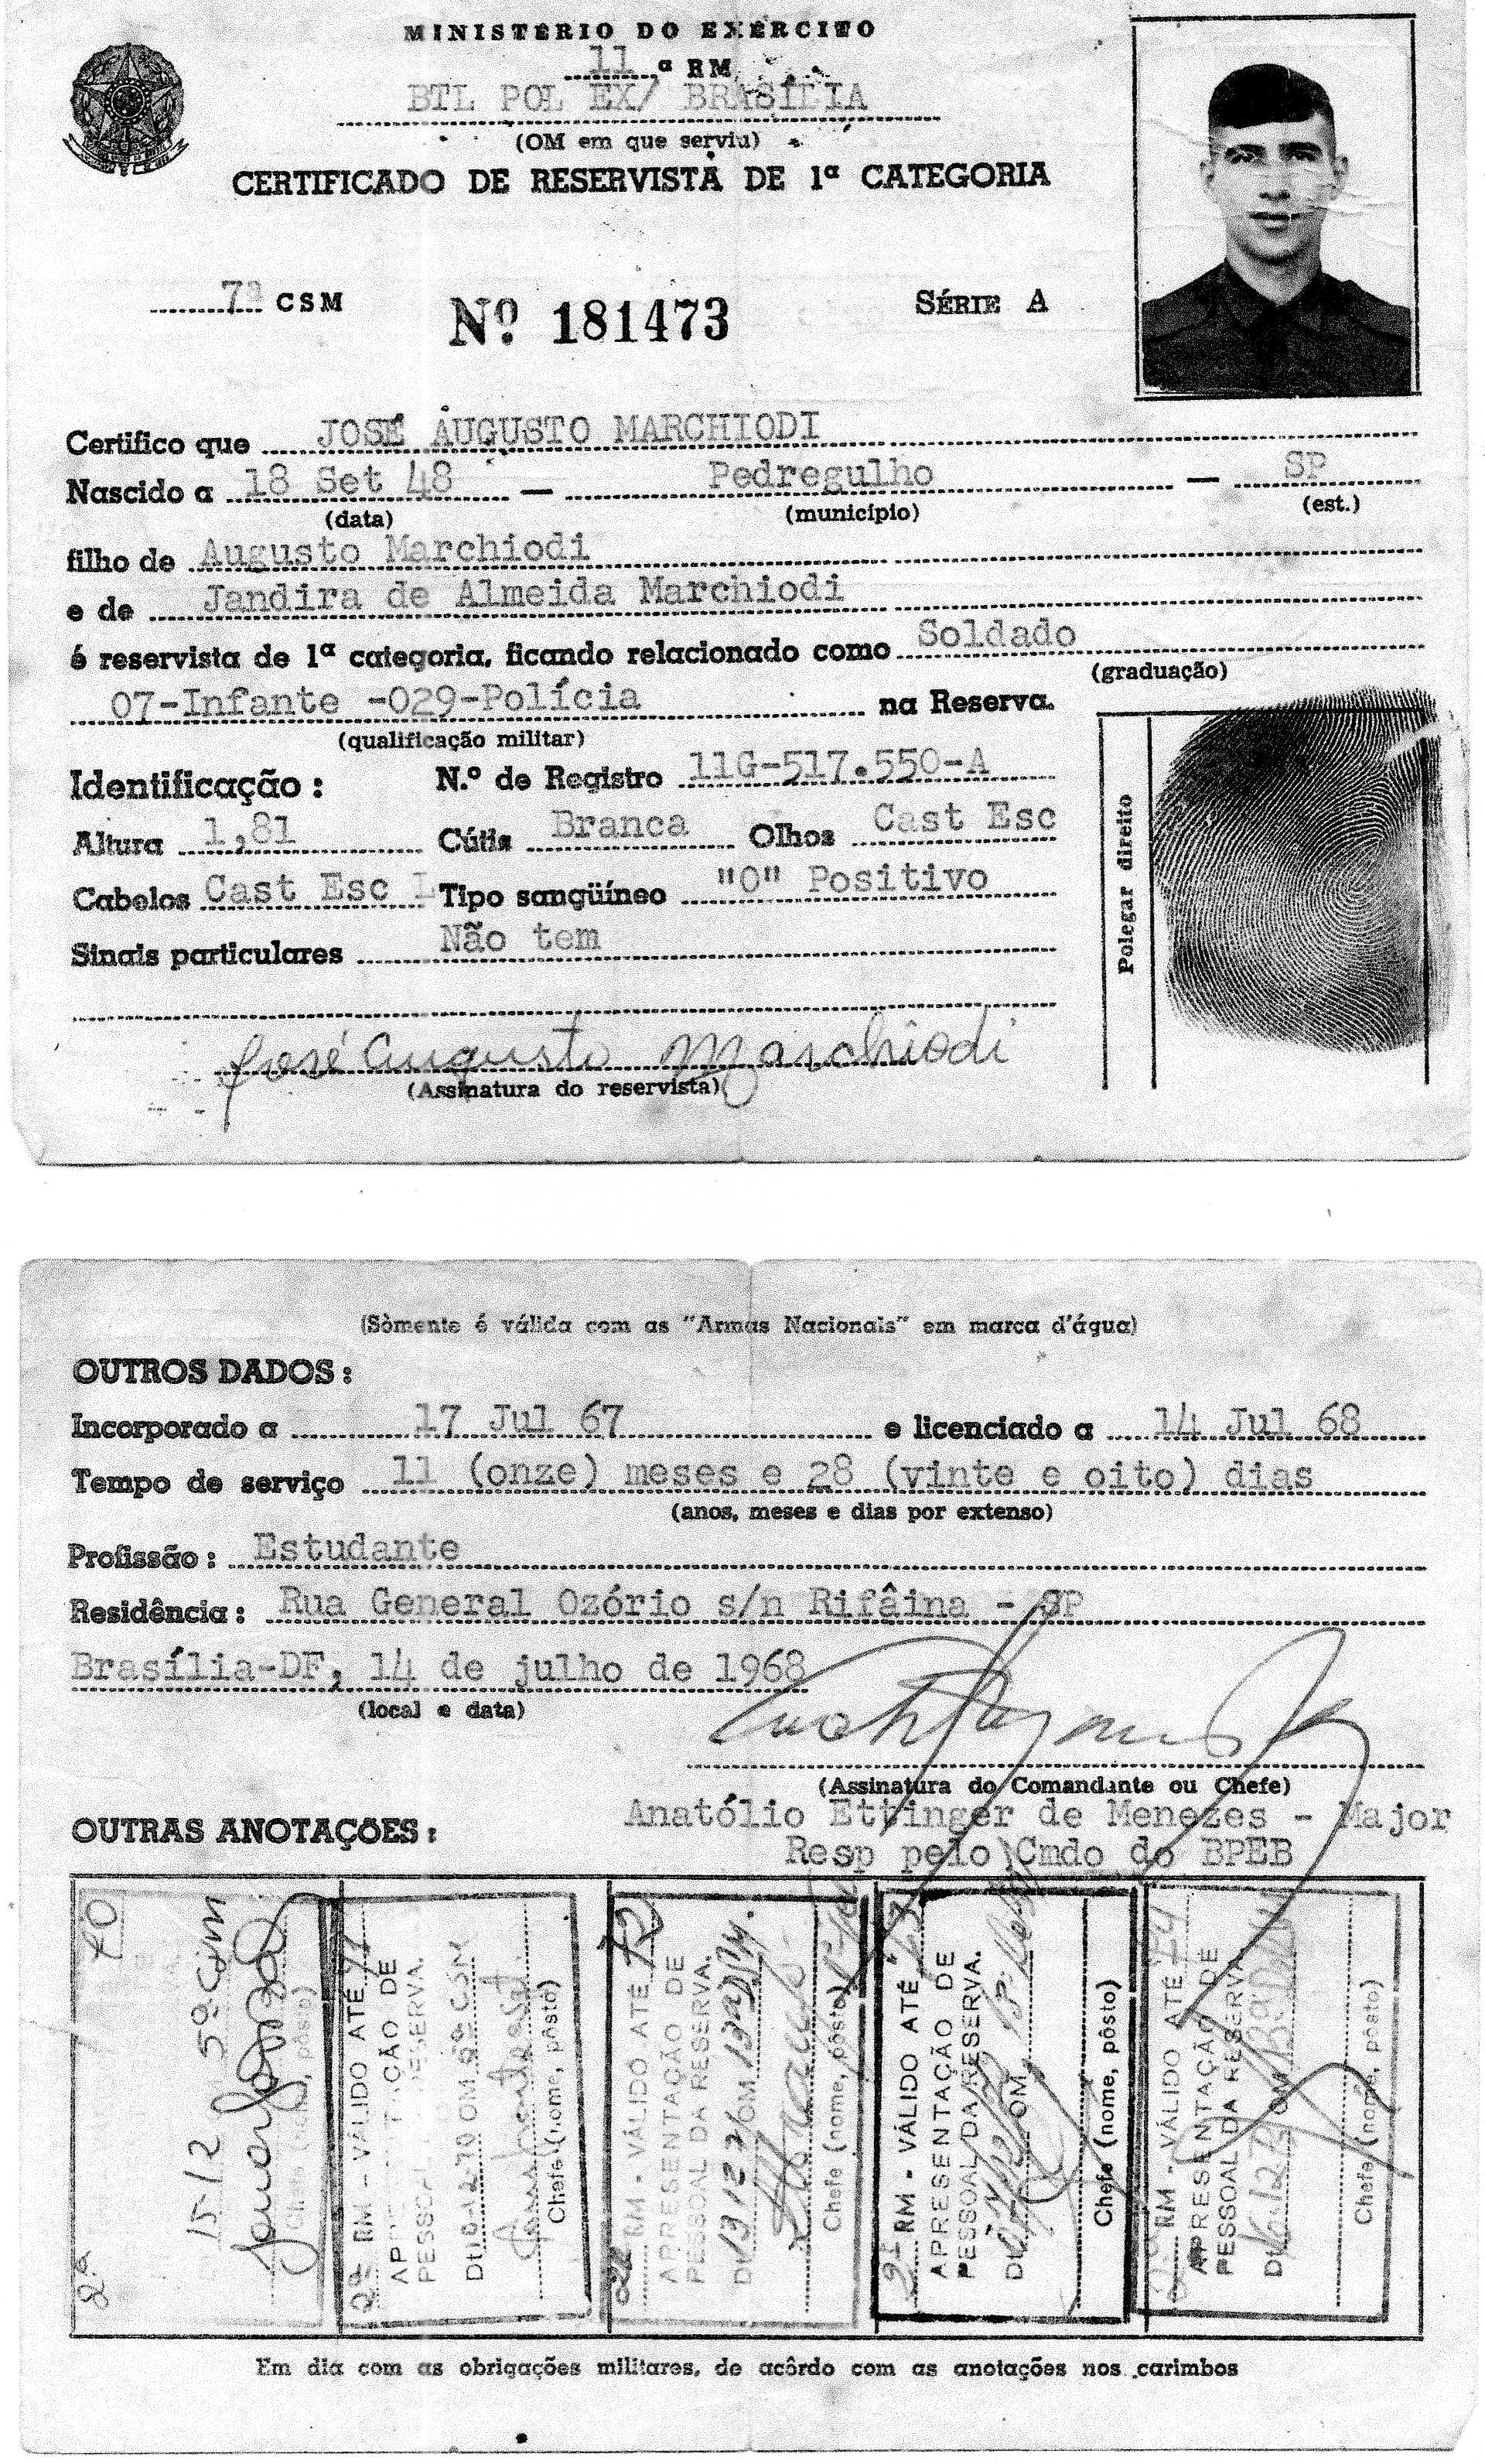 MINISTÉRIO DO EXÉRCITO
11 ª RM
BTL POL EX/ BRASÍLIA
(OM em que serviu)
CERTIFICADO DE RESERVISTA DE 1ª CATEGORIA
7ª CSM Nº 181473 SÉRIE A
Certifico que JOSÉ AUGUSTO MARCHIODI
Nascido a 18 Set 48 — Pedregulho — SP
(data) (município) (est.)
filho de Augusto Marchiodi
e de Jandira de Almeida Marchiodi
é reservista de 1ª categoria, ficando relacionado como Soldado
(graduação)
07-Infante -029-Polícia na Reserva.
(qualificação militar)
Identificação : N.º de Registro 11G-517.550-A
Altura 1,81 Cútis Branca Olhos Cast Esc
Cabelos Cast Esc L Tipo sangüíneo "O" Positivo
Sinais particulares Não tem
Polegar direito
José Augusto Marchiodi
(Assinatura do reservista)
(Sòmente é válida com as "Armas Nacionais" em marca d'água)
OUTROS DADOS :
Incorporado a 17 Jul 67 e licenciado a 14 Jul 68
Tempo de serviço 11 (onze) meses e 28 (vinte e oito) dias
(anos, meses e dias por extenso)
Profissão : Estudante
Residência : Rua General Ozório s/n Rifâina - SP
Brasília-DF, 14 de julho de 1968
(local e data)
(Assinatura do Comandante ou Chefe)
Anatólio Ettinger de Menezes - Major
Resp pelo Cmdo do BPEB
OUTRAS ANOTAÇÕES :
70
2ª 15-12 5ª CSM
2ª RM - VÁLIDO ATÉ 71
PESSOAL RESERVA.
Chefe (nome, pôsto)
2ª RM - VÁLIDO ATÉ 72
APRESENTAÇÃO DE
PESSOAL DA RESERVA.
Chefe (nome, pôsto)
2ª RM - VÁLIDO ATÉ
APRESENTAÇÃO DE
PESSOAL DA RESERVA.
Chefe (nome, pôsto)
RM - VÁLIDO ATÉ
APRESENTAÇÃO DE
PESSOAL DA RESERVA
Chefe (nome, pôsto)
Em dia com as obrigações militares, de acôrdo com as anotações nos carimbos